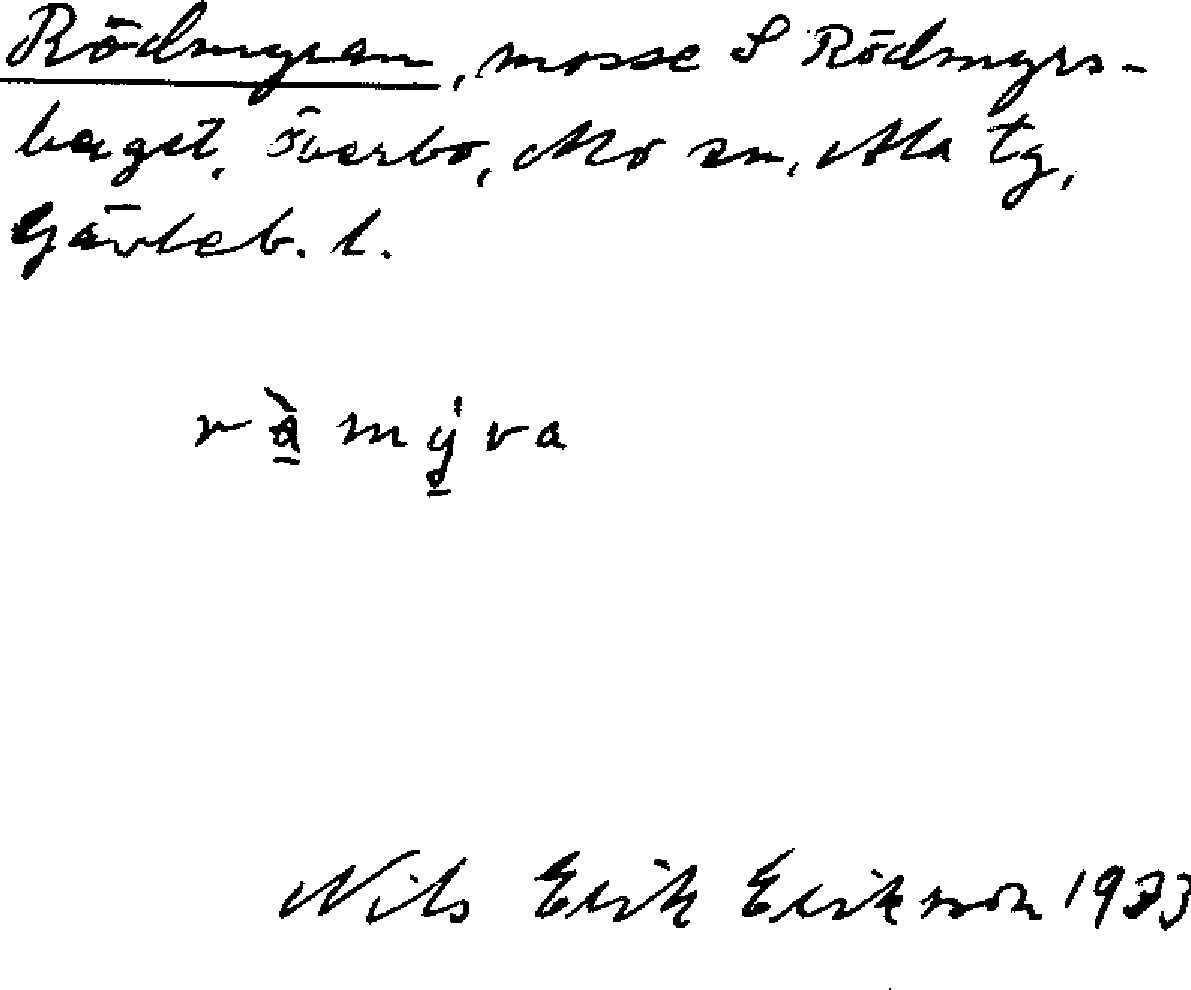 Rödmyran, mosse S Rödmyrs-
berget, Överbo, Mo sn, Ala tg,
Gävleb. l.
Nils Erik Erikson 1933